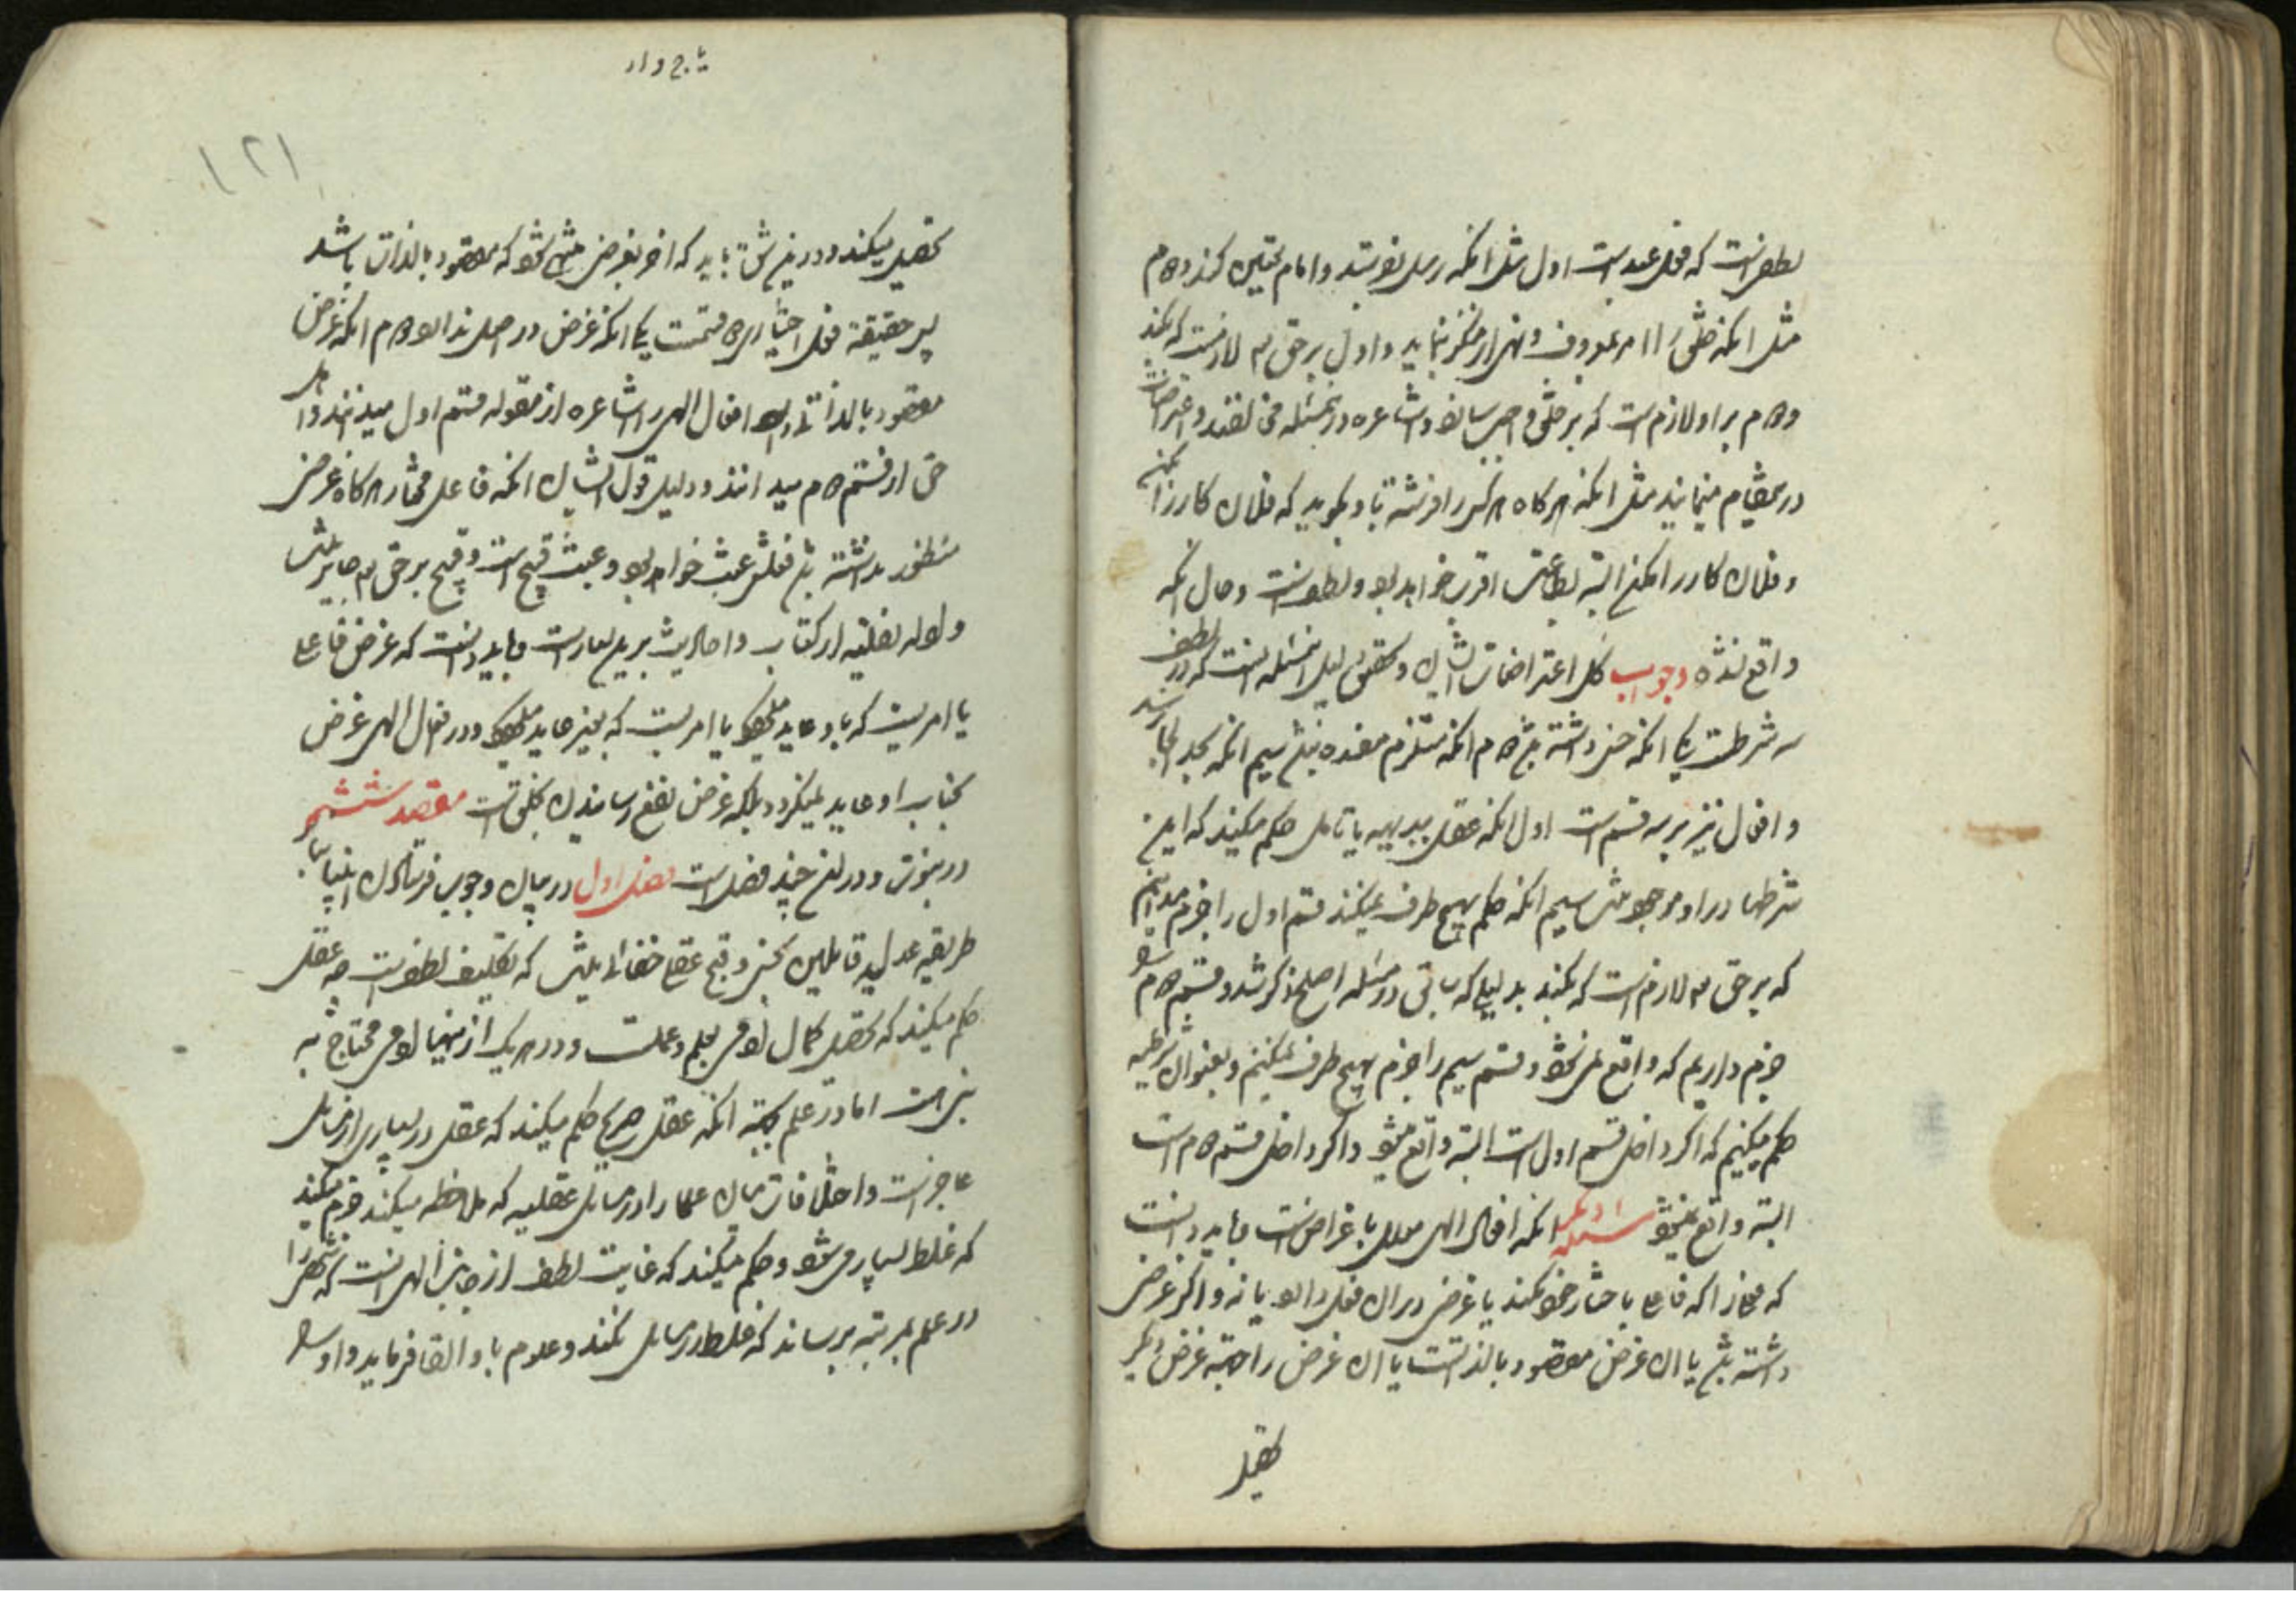 لطف است که فعل عبد است اول مثل انکه رسل بفرستد و امام تعیین کند دوم
مثل انکه خلق را امر بمعروف و نهی از منکر نماید و اول بر حق تع لازمست که بکند
ودوم بر او لازم است که بر خلق واجب سازد و اشاعره در این مسئله مخالفند و اعتراضات
در این مقام مینمایند مثل انکه هرگاه هرکس را فرشته با او بگوید که فلان کار را بکن
و فلان کار را مکن البته بطاعت اقرب خواهد بود و لطف است و حال انکه
واقع نشده وجواب کل اعتراضات ایشان و تحقیق این مسئله انست که در لطف
سه شرطست یکی انکه حسن داشته باشد دوم انکه مستلزم مفسده نباشد سیم انکه بحد الجا نرسد
و افعال نیز بر سه قسم است اول انکه عقل ببدیهه یا تامل حکم میکند که این
شرطها در او موجود سیم انکه حکم بهیچ طرف نمیکند قسم اول را جزم میدانیم
که بر حق تع لازم است که بکند بدلیلی که سابق در مسئله اصلح ذکر شد و قسم دوم
جزم داریم که واقع نمیشود و قسم سیم را جزم بهیچ طرف نمیکنیم و بعنوان شرطیه
حکم میکنیم که اگر داخل قسم اول است البته واقع میشود و اگر داخل قسم دوم است
البته واقع نمیشود مسئله دیگر انکه افعال الهی معلل باغراض است باید دانست
که فعلی را که فاعل باختیار خود بکند یا غرضی در ان فعل دارد یا نه و اگر غرض
داشته باشد یا ان غرض مقصود بالذاتست یا ان غرض را بجهة غرض دیگر
تحصیل
۱۲۱
تحصیل میکند و در این شق باید که اخر بغرضی منتهی شود که مقصود بالذات باشد
پس حقیقة فعل اختیاری دو قسمست یکی انکه غرض در اصل ندارد دوم انکه غرض
مقصود بالذات دارد افعال الهی را اشاعره از مقوله قسم اول میدانند و اهل
حق از قسم دوم میدانند و دلیل قول ایشان انکه فاعل مختار هرگاه غرض
منظور نداشته باشد فعلش عبث خواهد بود و عبث قبیح است و قبیح بر حق تع جایز نیست
و ادله نقلیه از کتاب و احادیث بر این بسیار است و باید دانست که غرض فاعل
یا امریست که باو عاید میشود یا امریست که بغیر عاید میشود و در افعال الهی غرض
بجناب او عاید نمیگردد بلکه غرض نفع رسانیدن بخلق است مقصد ششم
در نبوت و در ان چند فصل است فصل اول در بیان وجوب فرستادن انبیا
طریقه عدلیه قائلین بحسن و قبح عقلی که تکلیف لطف است چه عقل
حکم میکند که تحصیل کمال نوعی بعلم و عملست و در هر یک از اینها نوعی محتاج به
نبی است اما در علم بجهة انکه عقل صریح حکم میکند که عقل در بسیاری از مسائل
عاجز است و اختلافات میان علما را در مسائل عقلیه که ملاحظه میکند جزم میکند
که غلط بسیار میشود و حکم میکند که غایت لطف از جانب الهی انست که شخصی را
در علم بمرتبه برساند که غلط در مسائل نکند و علوم باو القا فرماید و او